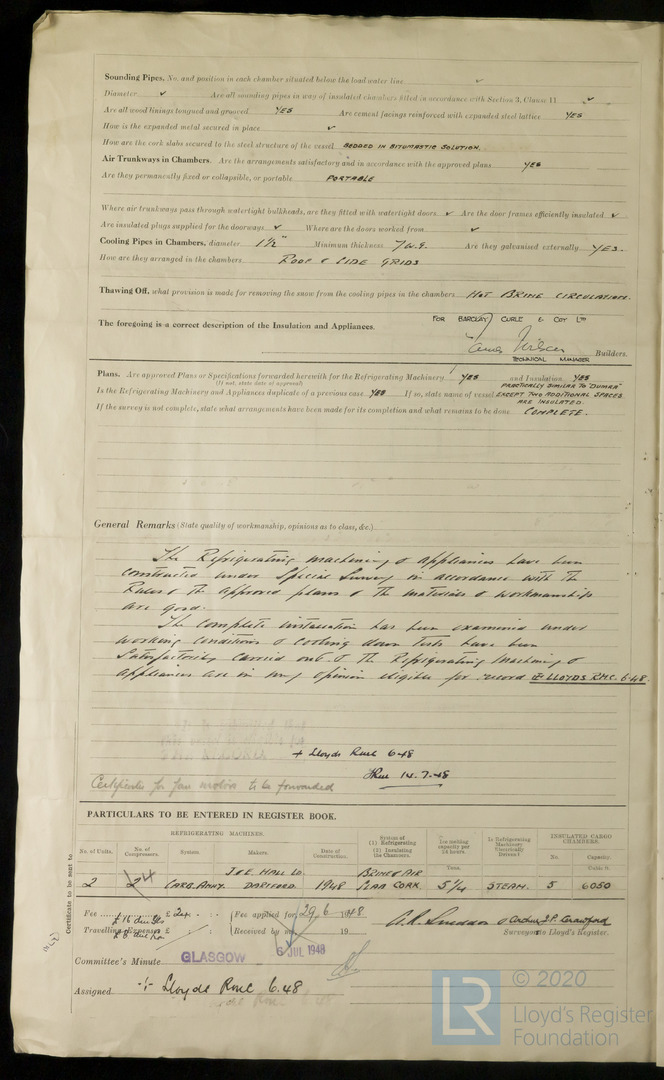 Sounding Pipes. No. and position in each chamber situated below the load water line ✓
Diameter ✓ Are all sounding pipes in way of insulated chambers fitted in accordance with Section 3, Clause 11 ✓
Are all wood linings tongued and grooved YES Are cement facings reinforced with expanded steel lattice YES
How is the expanded metal secured in place ✓
How are the cork slabs secured to the steel structure of the vessel BEDDED IN BITUMASTIC SOLUTION.
Air Trunkways in Chambers. Are the arrangements satisfactory and in accordance with the approved plans YES
Are they permanently fixed or collapsible, or portable PORTABLE
Where air trunkways pass through watertight bulkheads, are they fitted with watertight doors ✓ Are the door frames efficiently insulated ✓
Are insulated plugs supplied for the doorways ✓ Where are the doors worked from ✓
Cooling Pipes in Chambers, diameter 1½" Minimum thickness 7 W.G. Are they galvanised externally YES.
How are they arranged in the chambers ROOF & SIDE GRIDS
Thawing Off, what provision is made for removing the snow from the cooling pipes in the chambers HOT BRINE CIRCULATION.
FOR BARCLAY CURLE & COY LTD
The foregoing is a correct description of the Insulation and Appliances.
James
TECHNICAL MANAGER
Builders.
Plans. Are approved Plans or Specifications forwarded herewith for the Refrigerating Machinery YES and Insulation YES
(If not, state date of approval)
PRACTICALLY SIMILAR TO "DUMRA"
Is the Refrigerating Machinery and Appliances duplicate of a previous case YES If so, state name of vessel EXCEPT TWO ADDITIONAL SPACES
ARE INSULATED.
If the survey is not complete, state what arrangements have been made for its completion and what remains to be done COMPLETE.
General Remarks (State quality of workmanship, opinions as to class, &c.)
The Refrigerating machinery & appliances have been
constructed under Special Survey in accordance with the
Rules & the approved plans & the materials & workmanship
are good.
The complete installation has been examined under
working conditions & cooling down tests have been
Satisfactorily carried out & the Refrigerating Machinery &
appliances are in my opinion eligible for record LLOYDS RMC. 6.48.
+ Lloyds RMC 6.48
14.7.48
Certificates for fan motors to be forwarded
PARTICULARS TO BE ENTERED IN REGISTER BOOK.
REFRIGERATING MACHINES.
No. of Units. No. of Compressors. System. Makers. Date of Construction. System of (1) Refrigerating (2) Insulating the Chambers. Ice melting capacity per 24 hours. Tons. Is Refrigerating Machinery Electrically Driven? INSULATED CARGO CHAMBERS. No. Capacity. Cubic ft.
J & E. HALL LD. BRINE & AIR
2 4 CARB. ANHY. DARTFORD. 1948 SLAB CORK. 5¼ STEAM. 5 6050
Certificate to be sent to
Fee £ 24 : : Fee applied for, 29.6 1948
Travelling Expenses £ : : Received by me, 19
Surveyor to Lloyd's Register.
Committee's Minute GLASGOW 6 JUL 1948
Assigned + Lloyds RMC 6.48
LR
© 2020
Lloyd's Register
Foundation